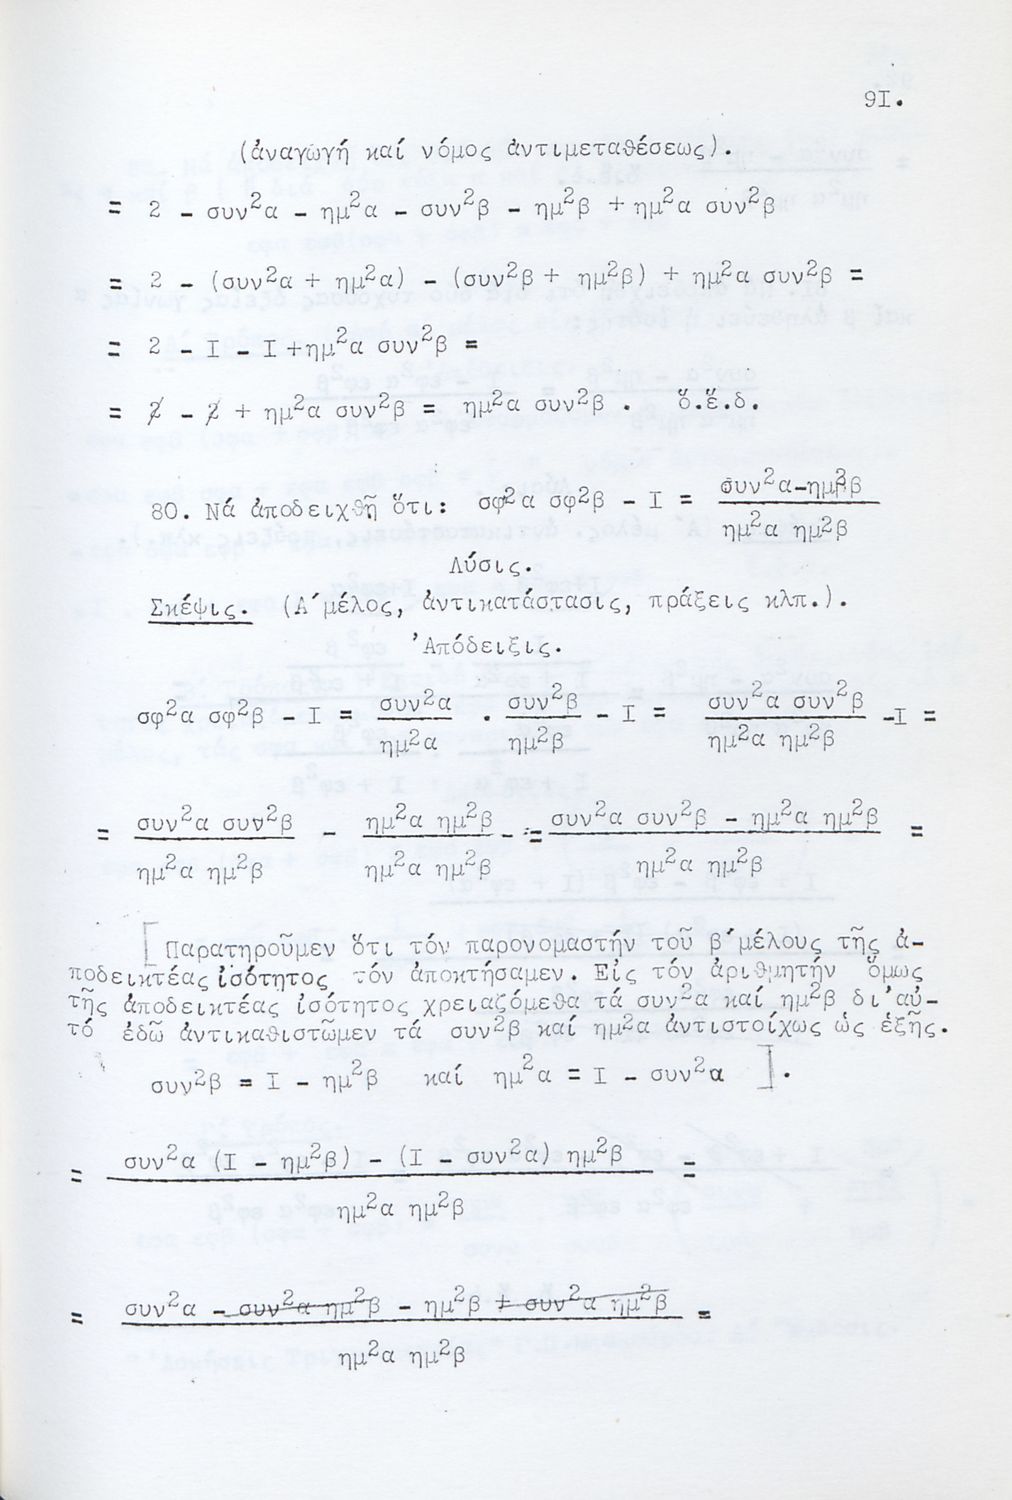 9I.
(ἀναγωγή καί νόμος ἀντιμεταθέσεως).
= 2 - συν²α - ημ²α - συν²β - ημ²β + ημ²α συν²β
= 2 - (συν²α + ημ²α) - (συν²β + ημ²β) + ημ²α συν²β =
= 2 - I - I +ημ²α συν²β =
= 2 - 2 + ημ²α συν²β = ημ²α συν²β . ὅ.ἔ.δ.
80. Νά ἀποδειχθῇ ὅτι: σφ²α σφ²β - I = συν²α-ημ²β
ημ²α ημ²β
Λύσις.
Σκέψις. (Α΄μέλος, ἀντικατάστασις, πράξεις κλπ.).
Ἀπόδειξις.
σφ²α σφ²β - I = συν²α / ημ²α . συν²β / ημ²β - I = συν²α συν²β / ημ²α ημ²β -I =
= συν²α συν²β / ημ²α ημ²β - ημ²α ημ²β / ημ²α ημ²β - = συν²α συν²β - ημ²α ημ²β / ημ²α ημ²β =
[Παρατηροῦμεν ὅτι τόν παρονομαστήν τοῦ β΄μέλους τῆς ἀ-
ποδεικτέας ἰσότητος τόν ἀποκτήσαμεν. Εἰς τόν ἀριθμητήν ὅμως
τῆς ἀποδεικτέας ἰσότητος χρειαζόμεθα τά συν²α καί ημ²β δι'αὐ-
τό ἐδῶ ἀντικαθιστῶμεν τά συν²β καί ημ²α ἀντιστοίχως ὡς ἑξῆς.
συν²β = I - ημ²β καί ημ²α = I - συν²α ].
= συν²α (I - ημ²β) - (I - συν²α) ημ²β =
ημ²α ημ²β
= συν²α - συν²α ημ²β - ημ²β + συν²α ημ²β =
ημ²α ημ²β